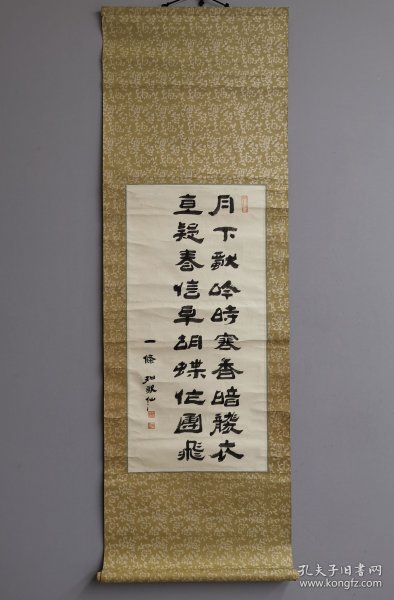 月下吟時寒香暗襲衣
直疑春信早胡蝶作團飛
一條
孔夫子旧书网
www.kongfz.com